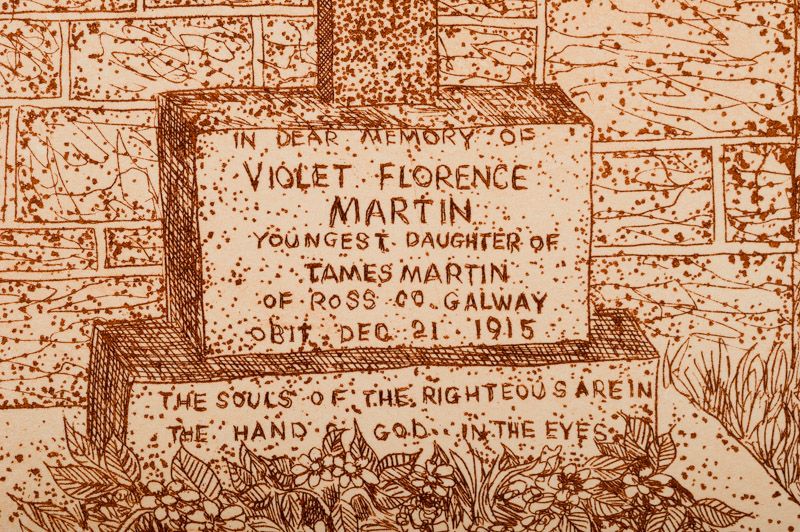 IN DEAR MEMORY OF
VIOLET FLORENCE
MARTIN
YOUNGEST DAUGHTER OF
TAMES MARTIN
OF ROSS CO. GALWAY
OBIT DEC 21 1915
THE SOULS OF THE RIGHTEOUS ARE IN
THE HAND OF GOD. IN THE EYES